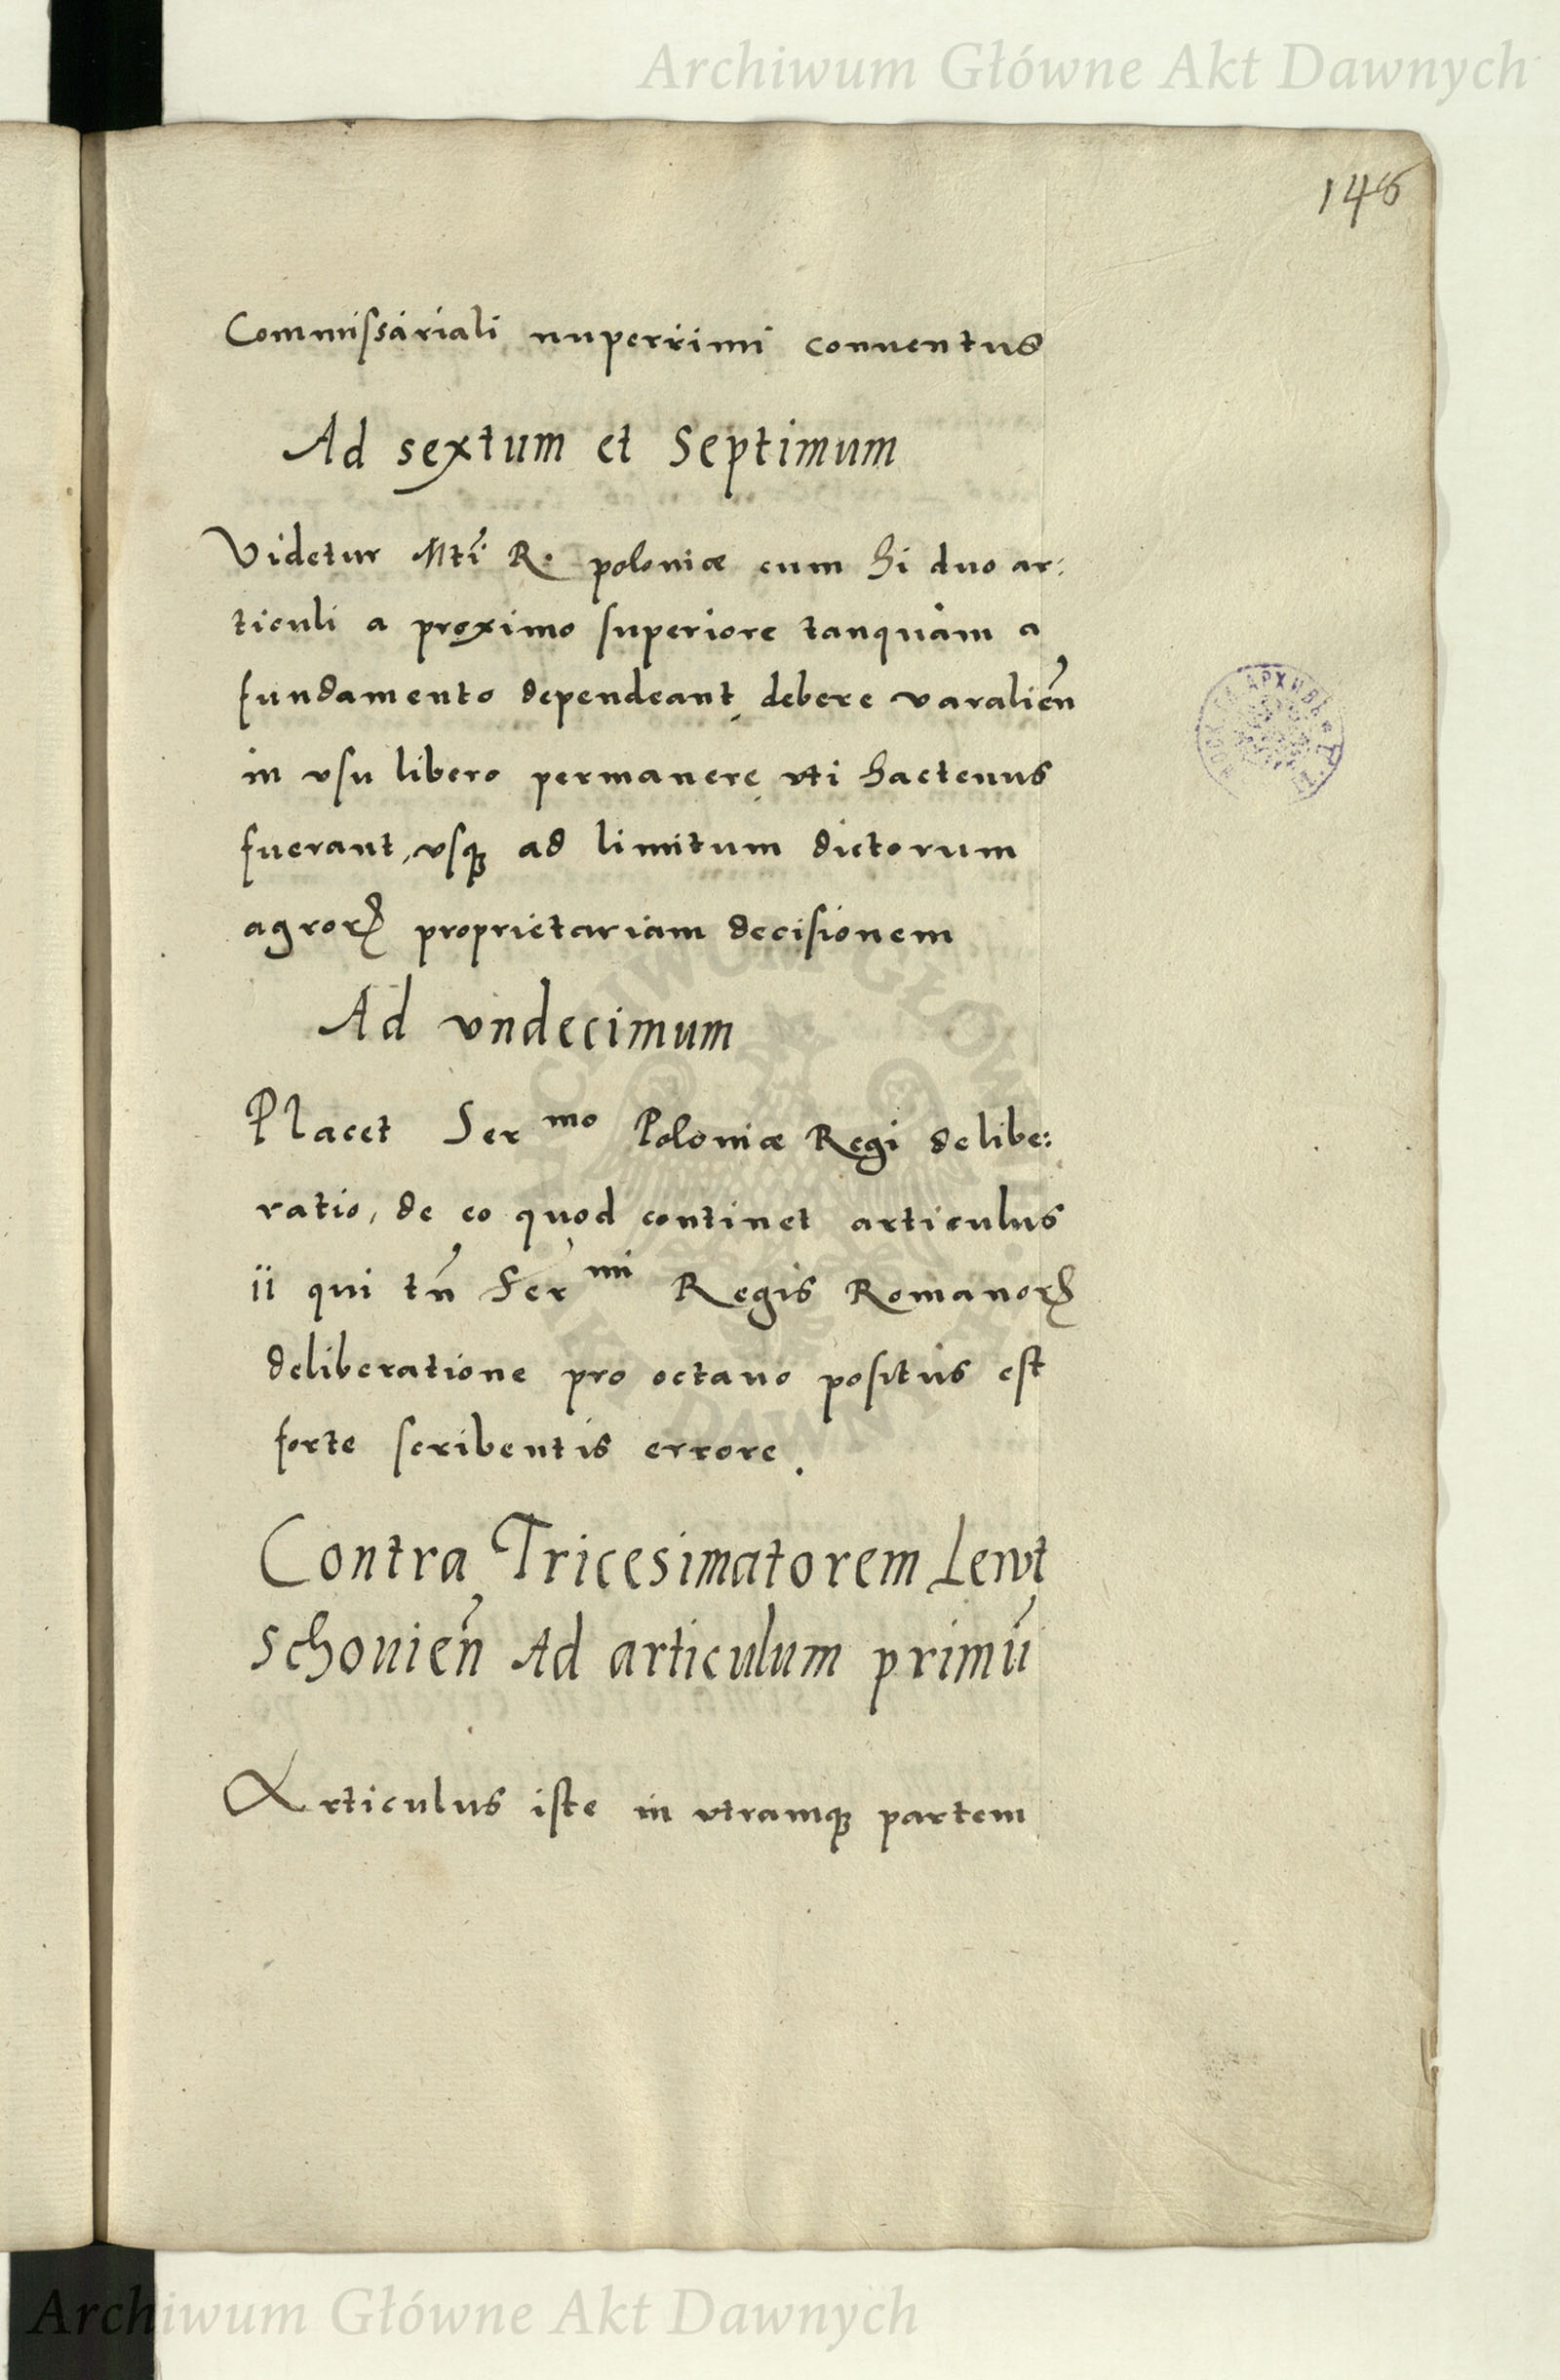 Archiwum Główne Akt Dawnych
146
Commissariali nuperrimi conuentus
Ad sextum et Septimum
Videtur Mti R. poloniæ cum hi duo ar:
ticuli a proximo superiore tanquam a
fundamento dependeant, debere varalien̄
in vsu libero permanere, vti hactenus
fuerant, vsqꝫ ad limitum dictorum
agrorꝝ proprietariam decisionem
Ad vndecimum
Placet Ser mo Poloniæ Regi delibe:
ratio, de eo quod continet articulus
ii qui tn̄ Ser mi Regis Romanorꝝ
deliberatione pro octauo positus est
forte scribentis errore.
Contra Tricesimatorem Lewt
schouien̄ Ad articulum primū
Articulus iste in vtramqꝫ partem
Archiwum Główne Akt Dawnych